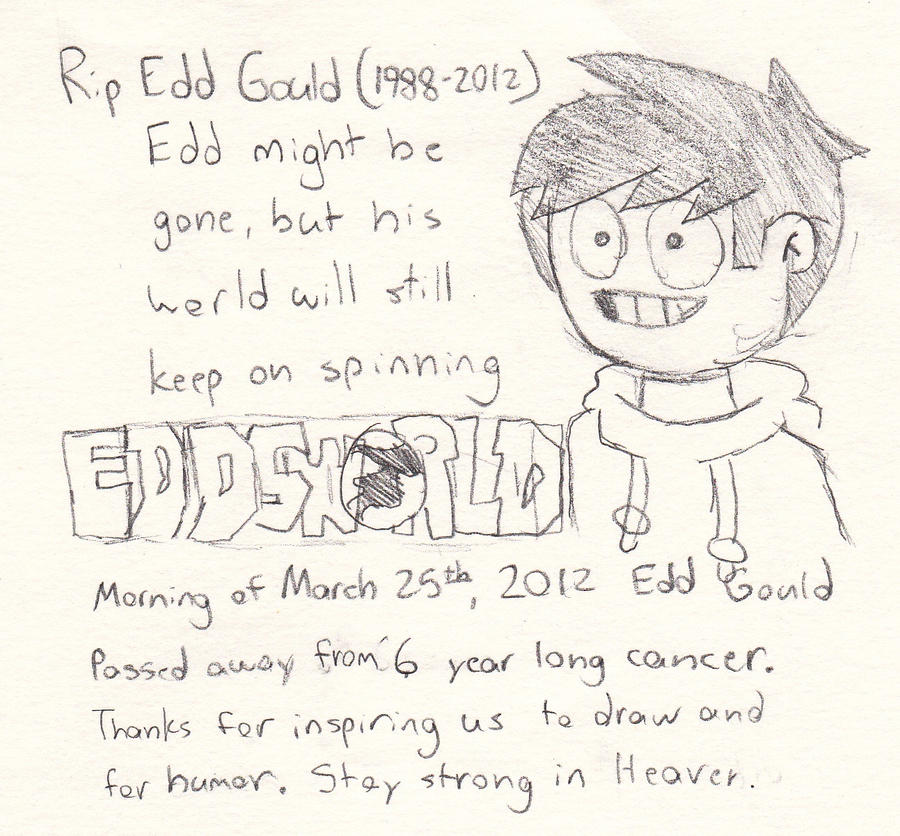 Rip Edd Gould (1988-2012)
Edd might be
gone, but his
world will still
keep on spinning
EDDSWORLD
Morning of March 25th, 2012 Edd Gould
Passed away from 6 year long cancer.
Thanks for inspiring us to draw and
for humor. Stay strong in Heaven.